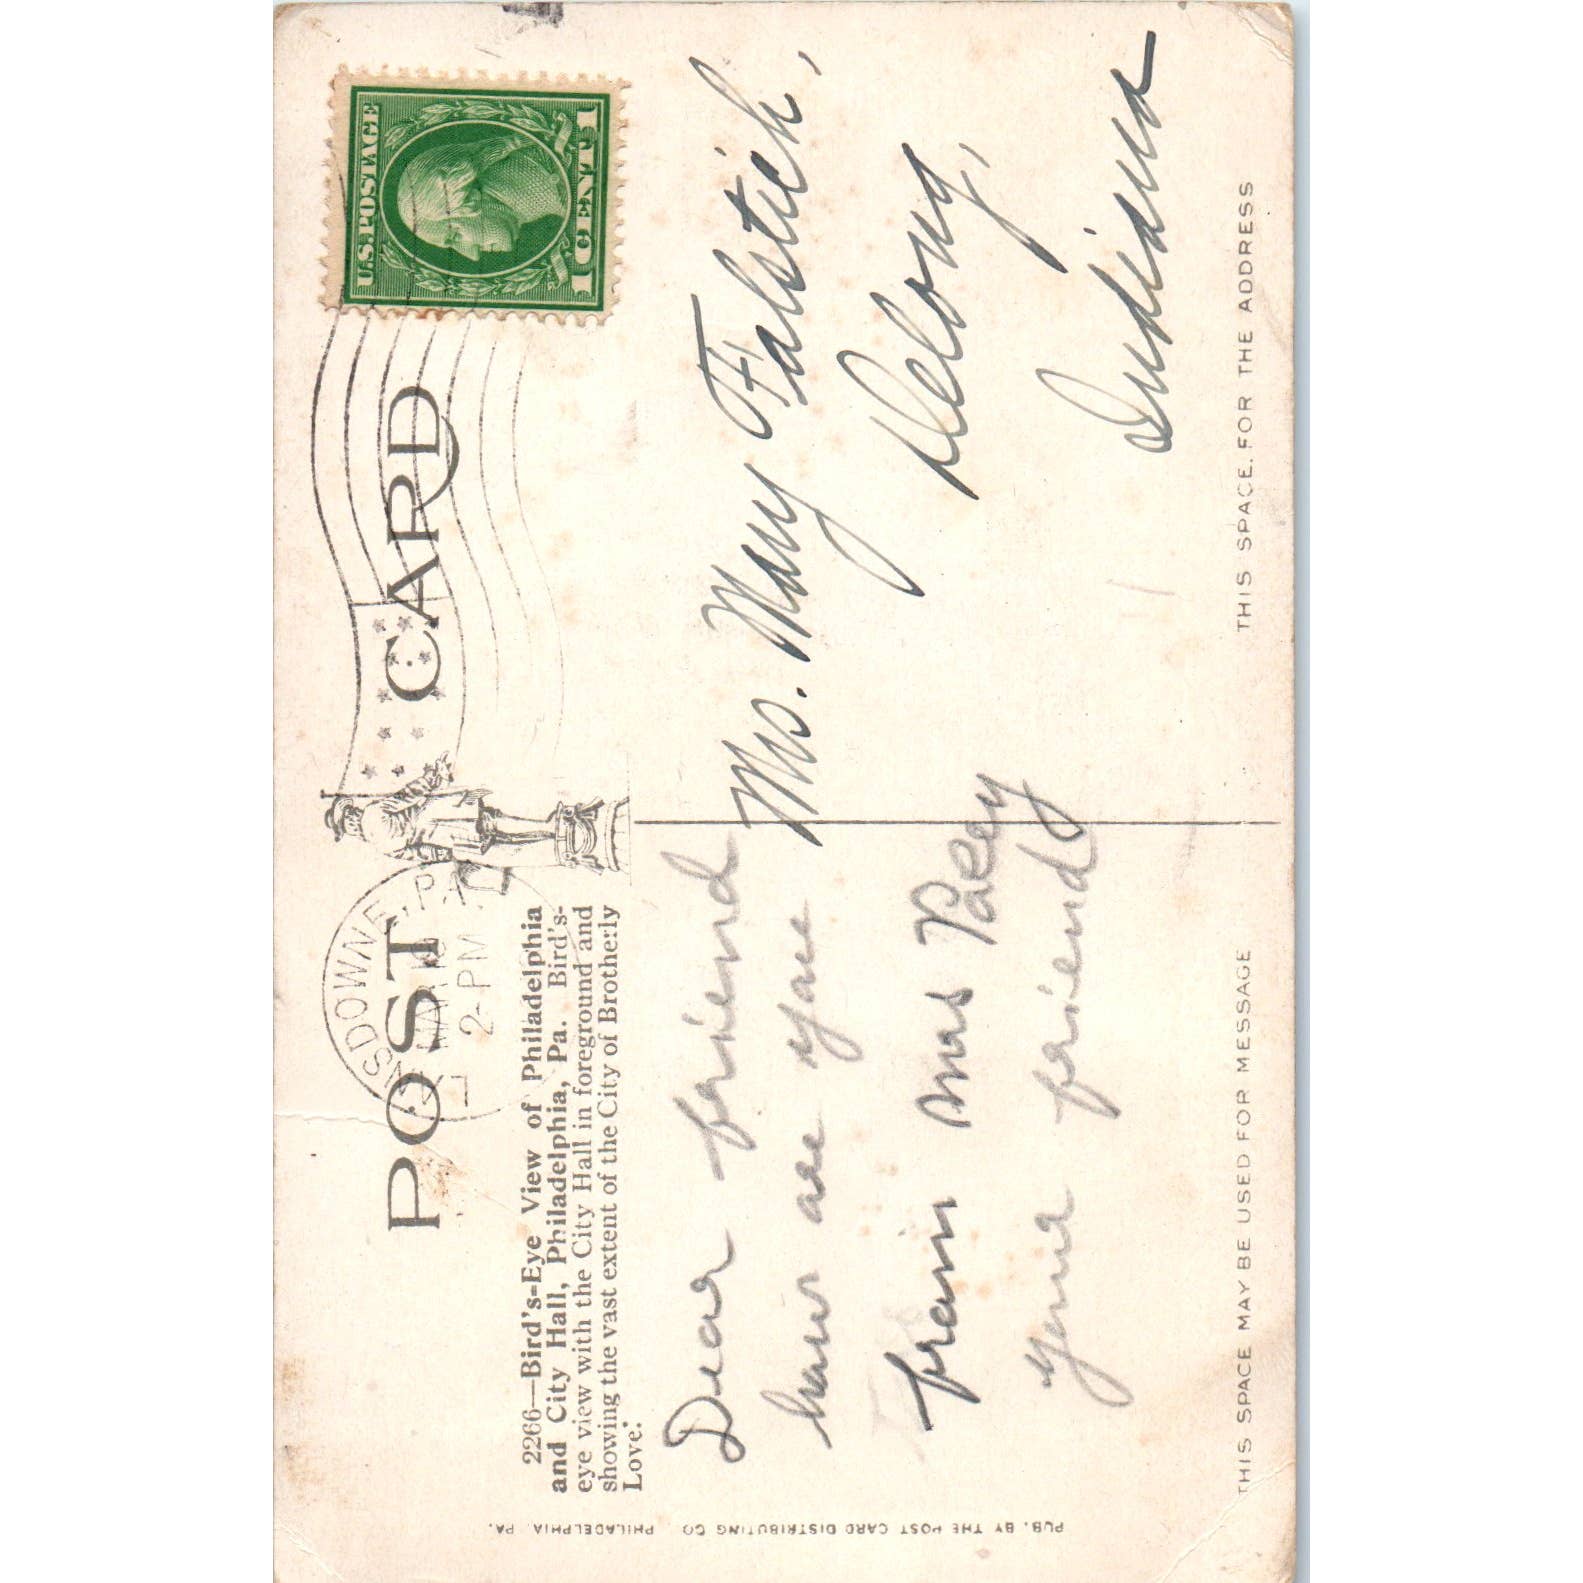 POST CARD
U.S. POSTAGE
1 CENT 1
NSDOWNE, PA.
MAR
2-PM
2266—Bird's-Eye View of Philadelphia
and City Hall, Philadelphia, Pa. Bird's-
eye view with the City Hall in foreground and
showing the vast extent of the City of Brotherly
Love.
Dear friend
how are you
from mrs
your friend
Mrs. Mary Falstich,
Delong,
Indiana
THIS SPACE MAY BE USED FOR MESSAGE
THIS SPACE FOR THE ADDRESS
PUB. BY THE POST CARD DISTRIBUTING CO. PHILADELPHIA, PA.